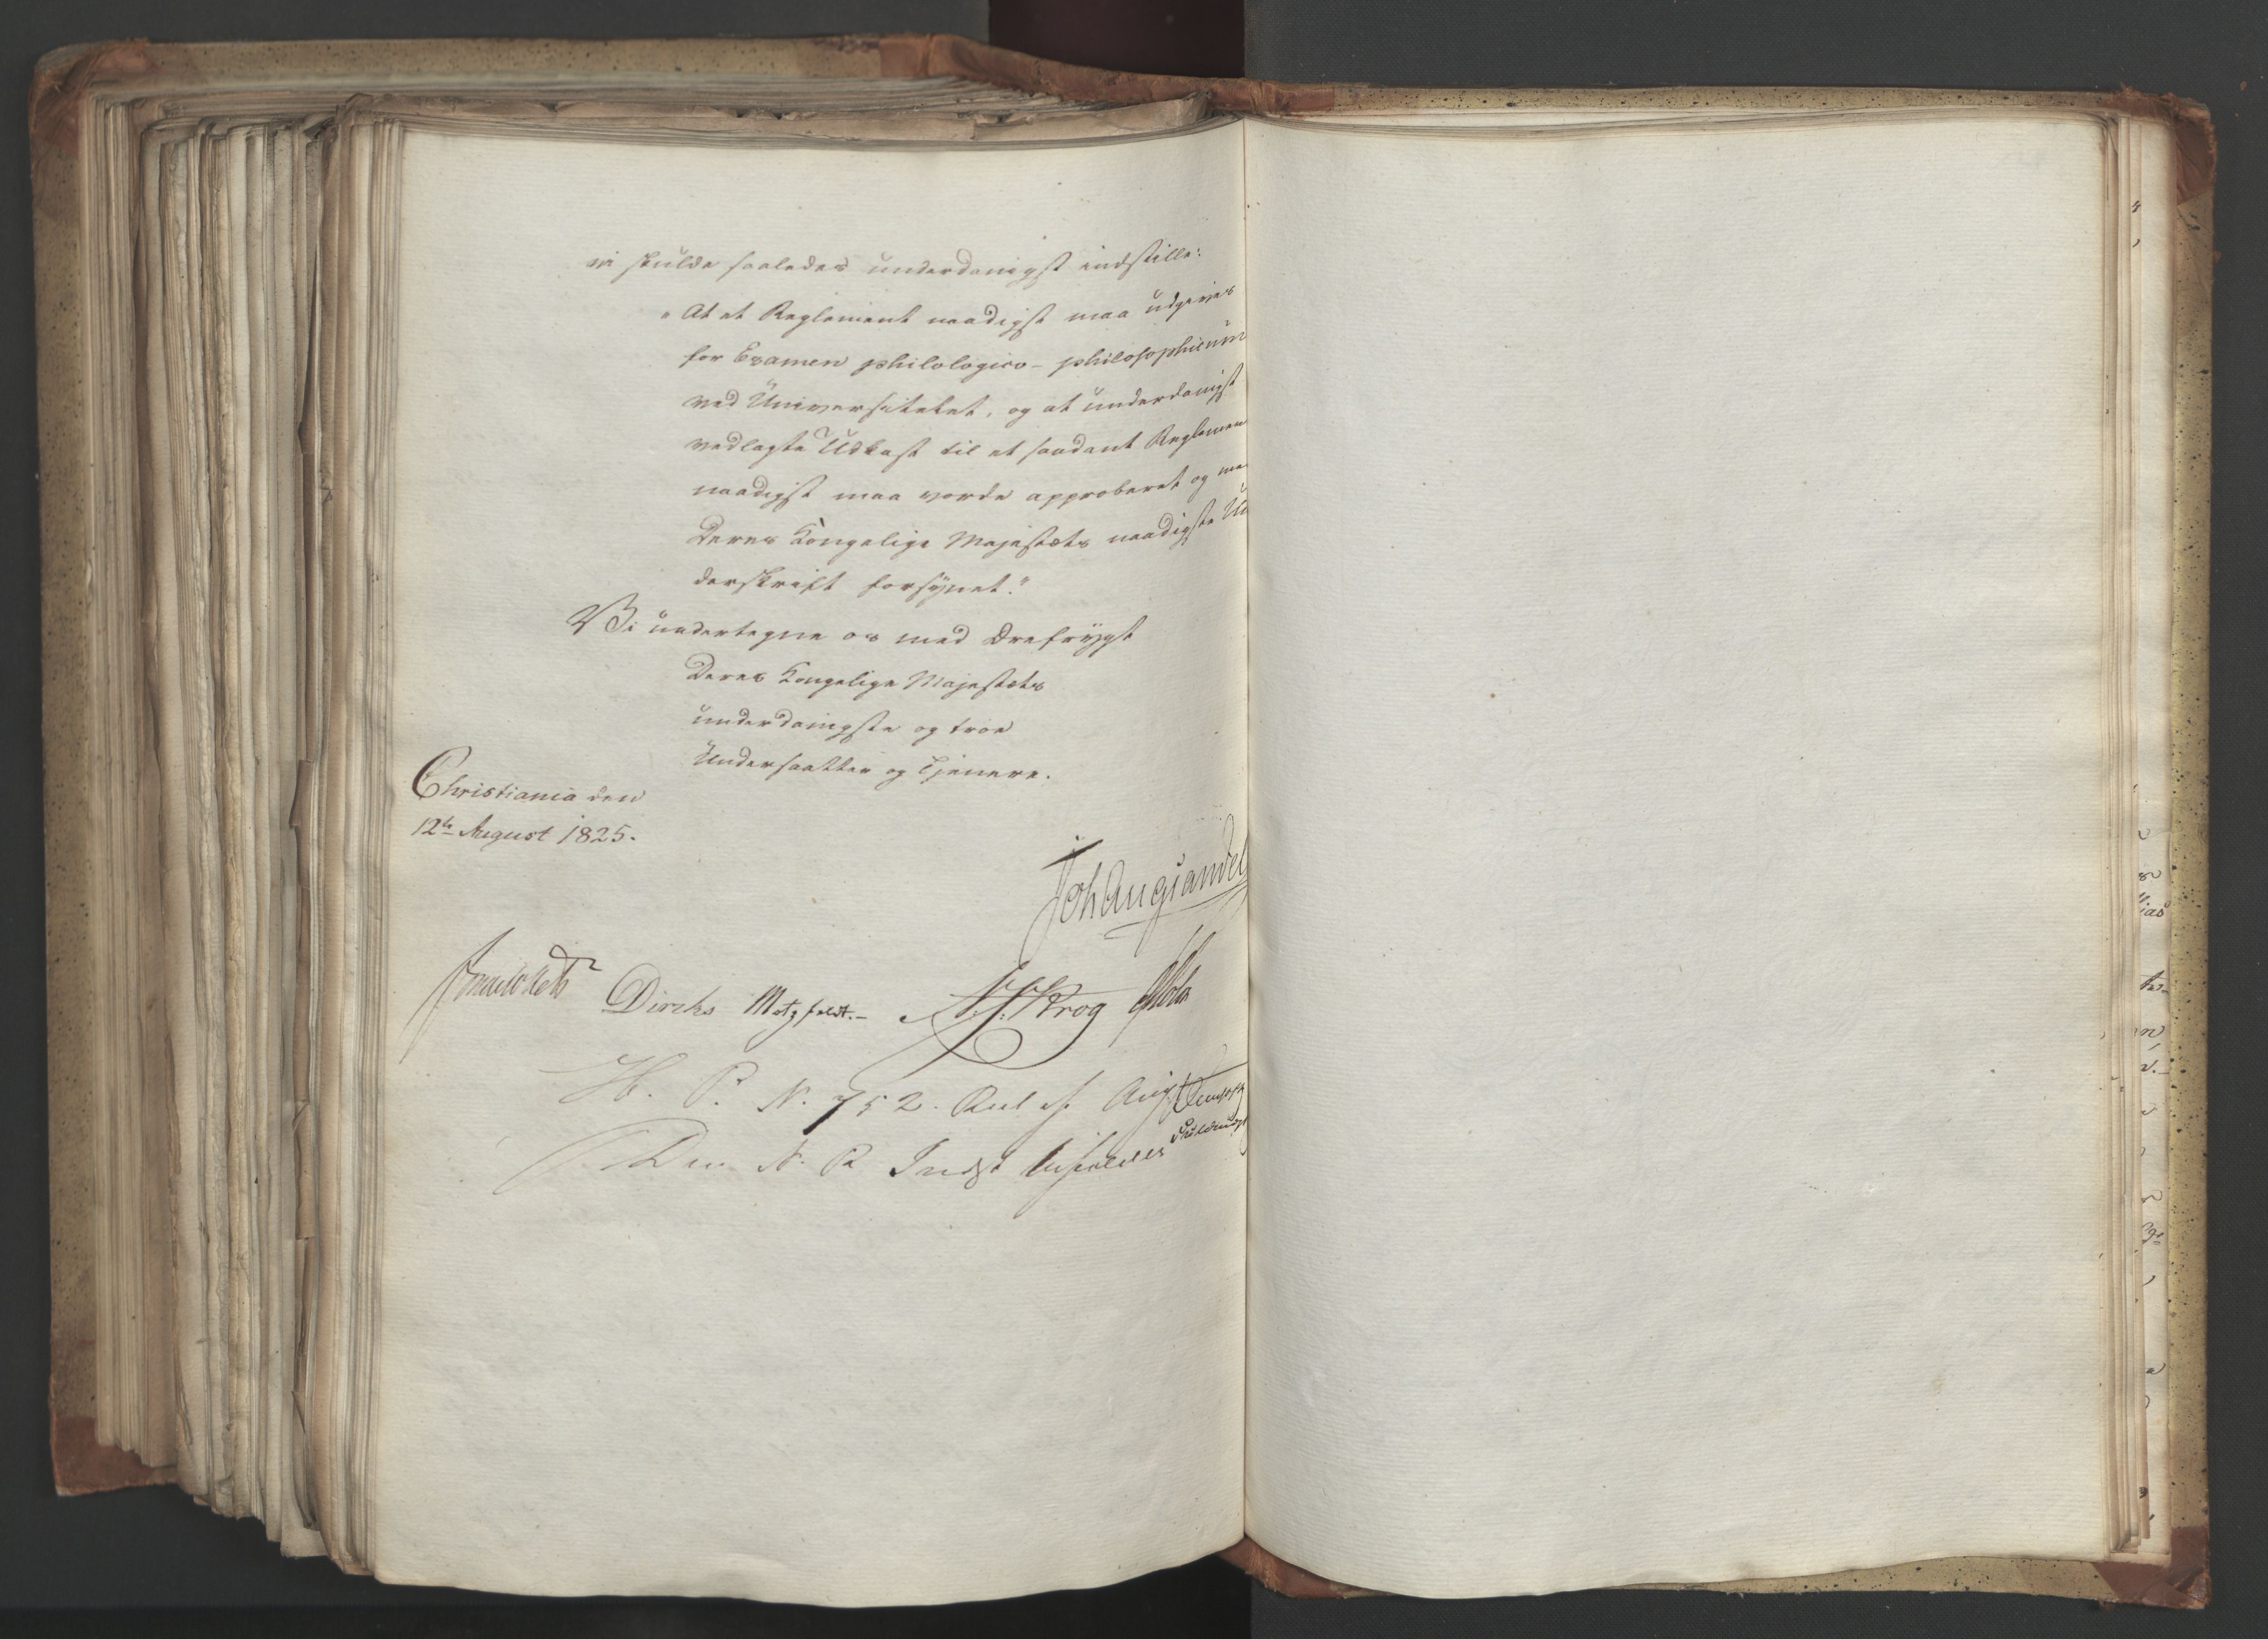 vi skulde saaledes underdanigst indstille:
"At et Reglement naadigst maa udgives
for Examen philologico-philosophicum
ved Universitetet, og at underdanigst
vedlagte Udkast til et saadant Reglemen
naadigst maa vorde approberet og me
Deres Kongelige Majestæts naadigste Un
derskrift forsynet."
Vi undertegne os med Ærefrygt
Deres Kongelige Majestæts
underdanigste og troe
Undersaatter og Tjenere.
Christiania den
12te August 1825.
Joh Aug Sandel
Diriks Motzfeldt.- Krog
N. 752.
Den N. R. Indst